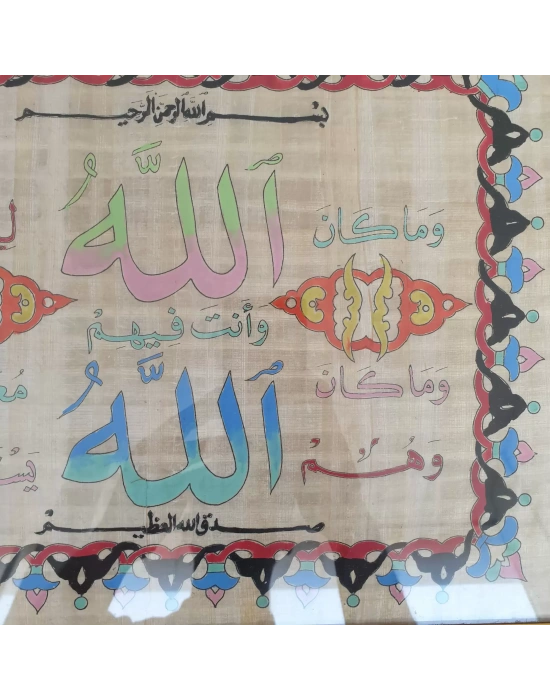 بسم الله الرحمن الرحيم
وَمَا كَانَ اللَّهُ
وَأَنتَ فِيهِمْ
وَمَا كَانَ اللَّهُ
وَهُمْ
صدق الله العظيم